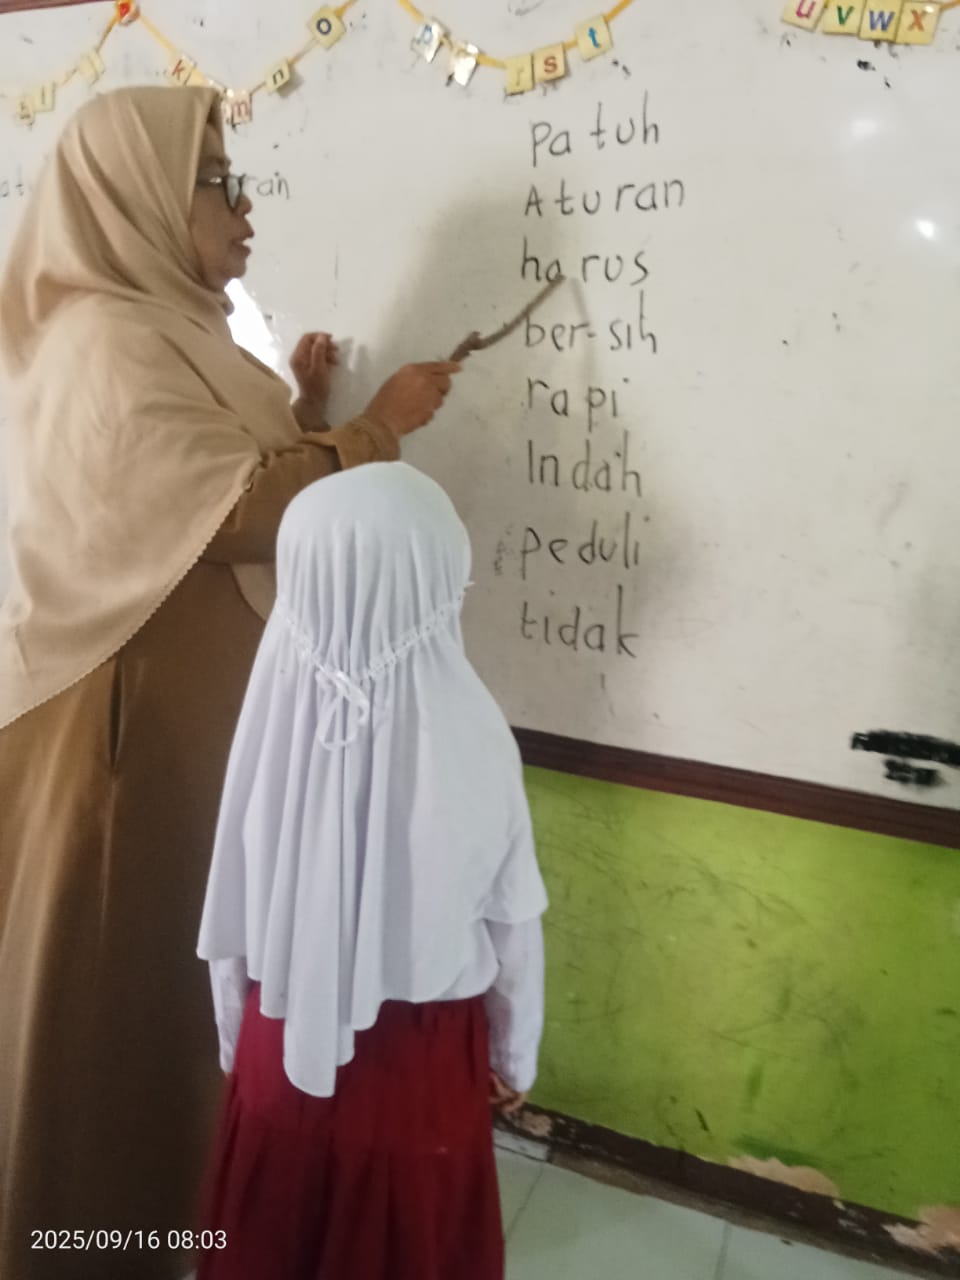 k m n o p r s t u v w x
Pa tuh
A tu ran
ha rus
ber-sih
ra pi
In dah
pe duli
tidak
2025/09/16 08:03